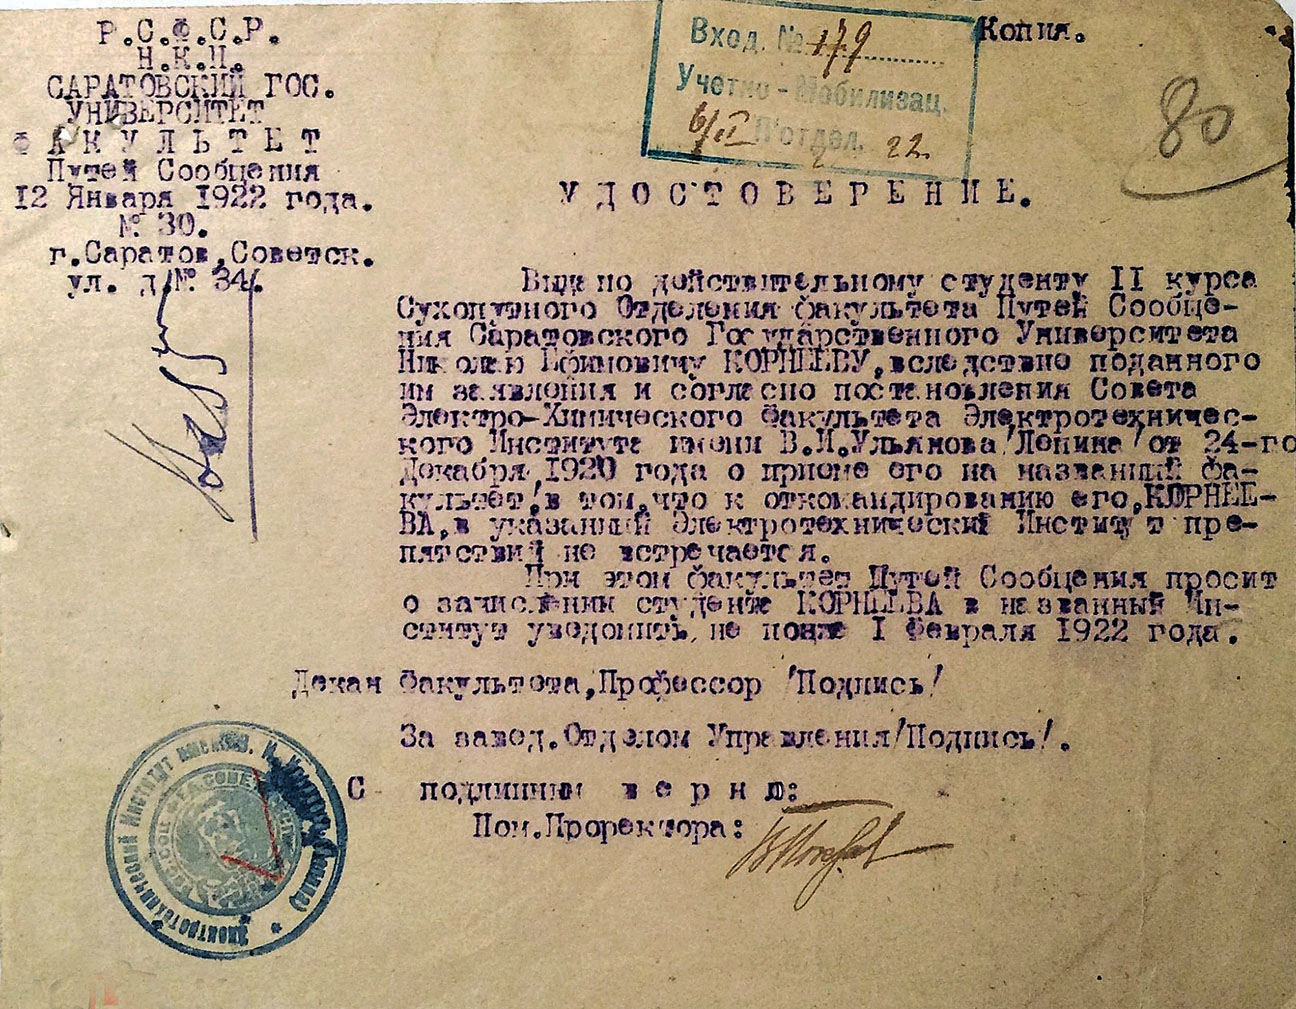 Р.С.Ф.С.Р.
Н.К.П.
САРАТОВСКИЙ ГОС.
УНИВЕРСИТЕТ
ФАКУЛЬТЕТ
Путей Сообщения
12 Января 1922 года.
№ 30.
г.Саратов,Советск.
ул. д.№ 34.
Вход. № 179
Учетно-Мобилизац.
П'отдел.
6/II 22.
Копия.
80
УДОСТОВЕРЕНИЕ.
Выдано действительному студенту II курса
Сухопутного Отделения факультета Путей Сообще-
ния Саратовского Государственного Университета
Николаю Ефимовичу КОРНЕЕВУ,вследствие поданного
им заявления и согласно постановления Совета
Электро-Химического Факультета Электротехничес-
кого Института имени В.И.Ульянова/Ленина/от 24-го
Декабря,1920 года о приеме его на названный фа-
культет,в том,что к откомандированию его,КОРНЕЕ-
ВА,в указанный Электротехнический Институт пре-
пятствий не встречается.
При этом факультет Путей Сообщения просит
о зачислении студента КОРНЕЕВА в названный Ин-
ститут уведомить, не позже I Февраля 1922 года.
Декан Факультета,Профессор /Подпись/
За завед.Отделом Управления/Подпись/.
С подлинным верно:
Пом.Проректора:
Электротехнический Институт имени В. И. Ульянова (Ленина)